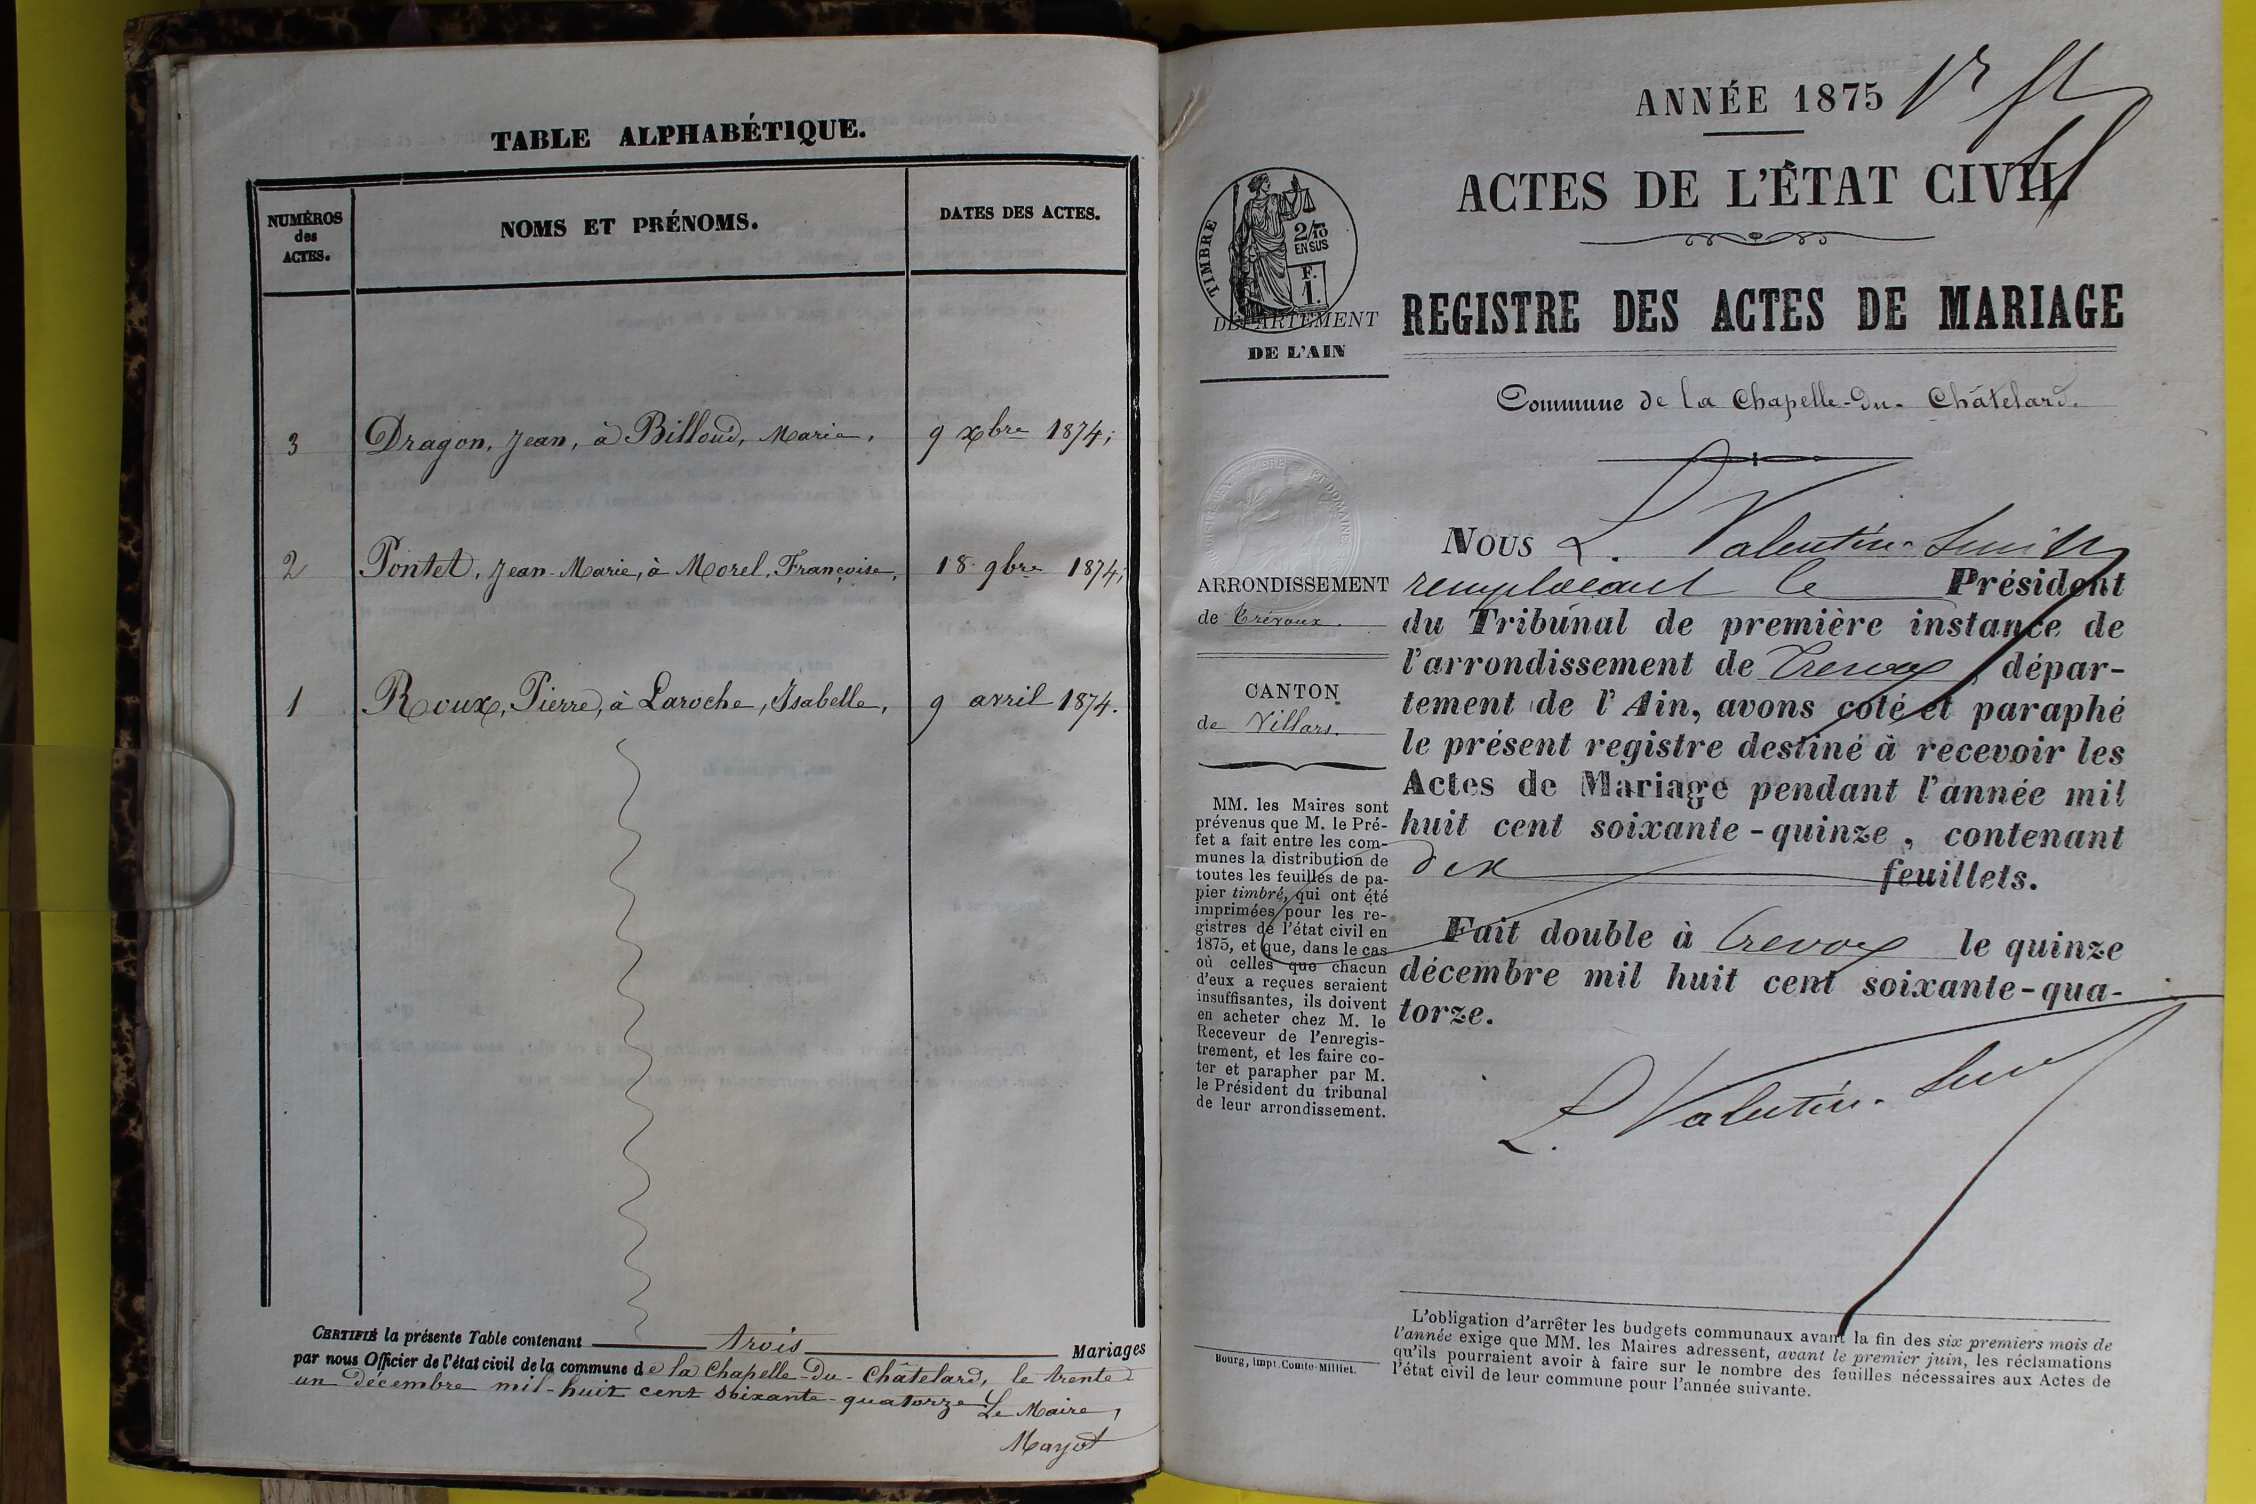 TABLE ALPHABÉTIQUE.
NUMÉROS
des
ACTES.
NOMS ET PRÉNOMS.
DATES DES ACTES.
3 Dragon, Jean, à Billoud, Marie, 9 xbre 1874;
2 Pontet, Jean-Marie, à Morel, Françoise, 18 9bre 1874;
1 Roux, Pierre, à Laroche, Isabelle, 9 avril 1874.
CERTIFIÉ la présente Table contenant trois Mariages
par nous Officier de l'état civil de la commune de la Chapelle-du-Châtelard, le trente
un décembre mil-huit cent soixante-quatorze
Le Maire,
Mayot
ANNÉE 1875
ACTES DE L'ÉTAT CIVIL
REGISTRE DES ACTES DE MARIAGE
Commune de la Chapelle-du-Châtelard.
TIMBRE
2/10
EN SUS
F.
1.
DÉPARTEMENT
DE L'AIN
ARRONDISSEMENT
de Trévoux.
CANTON
de Villars.
MM. les Maires sont
prévenus que M. le Pré-
fet a fait entre les com-
munes la distribution de
toutes les feuilles de pa-
pier timbré, qui ont été
imprimées pour les re-
gistres de l'état civil en
1875, et que, dans le cas
où celles que chacun
d'eux a reçues seraient
insuffisantes, ils doivent
en acheter chez M. le
Receveur de l'enregis-
trement, et les faire co-
ter et parapher par M.
le Président du tribunal
de leur arrondissement.
Bourg, impr. Comte-Milliet.
NOUS L. Valentin-Smith
remplaçant le Président
du Tribunal de première instance de
l'arrondissement de Trevoux, dépar-
tement de l'Ain, avons coté et paraphé
le présent registre destiné à recevoir les
Actes de Mariage pendant l'année mil
huit cent soixante-quinze, contenant
dix feuillets.
Fait double à Trevoux le quinze
décembre mil huit cent soixante-qua-
torze.
L. Valentin-Smith
L'obligation d'arrêter les budgets communaux avant la fin des six premiers mois de
l'année exige que MM. les Maires adressent, avant le premier juin, les réclamations
qu'ils pourraient avoir à faire sur le nombre des feuilles nécessaires aux Actes de
l'état civil de leur commune pour l'année suivante.